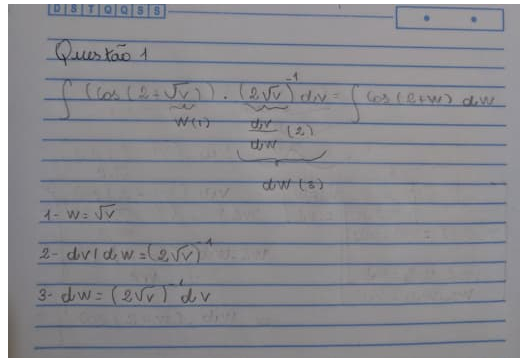 D S T Q Q S S
Questão 1
∫ (cos (2+√v)) · (2√v)⁻¹ dv = ∫ cos (2+w) dw
w(1) dv/dw (2)
dw (3)
1- w=√v
2- dv/dw=(2√v)⁻¹
3- dw=(2√v)⁻¹dv